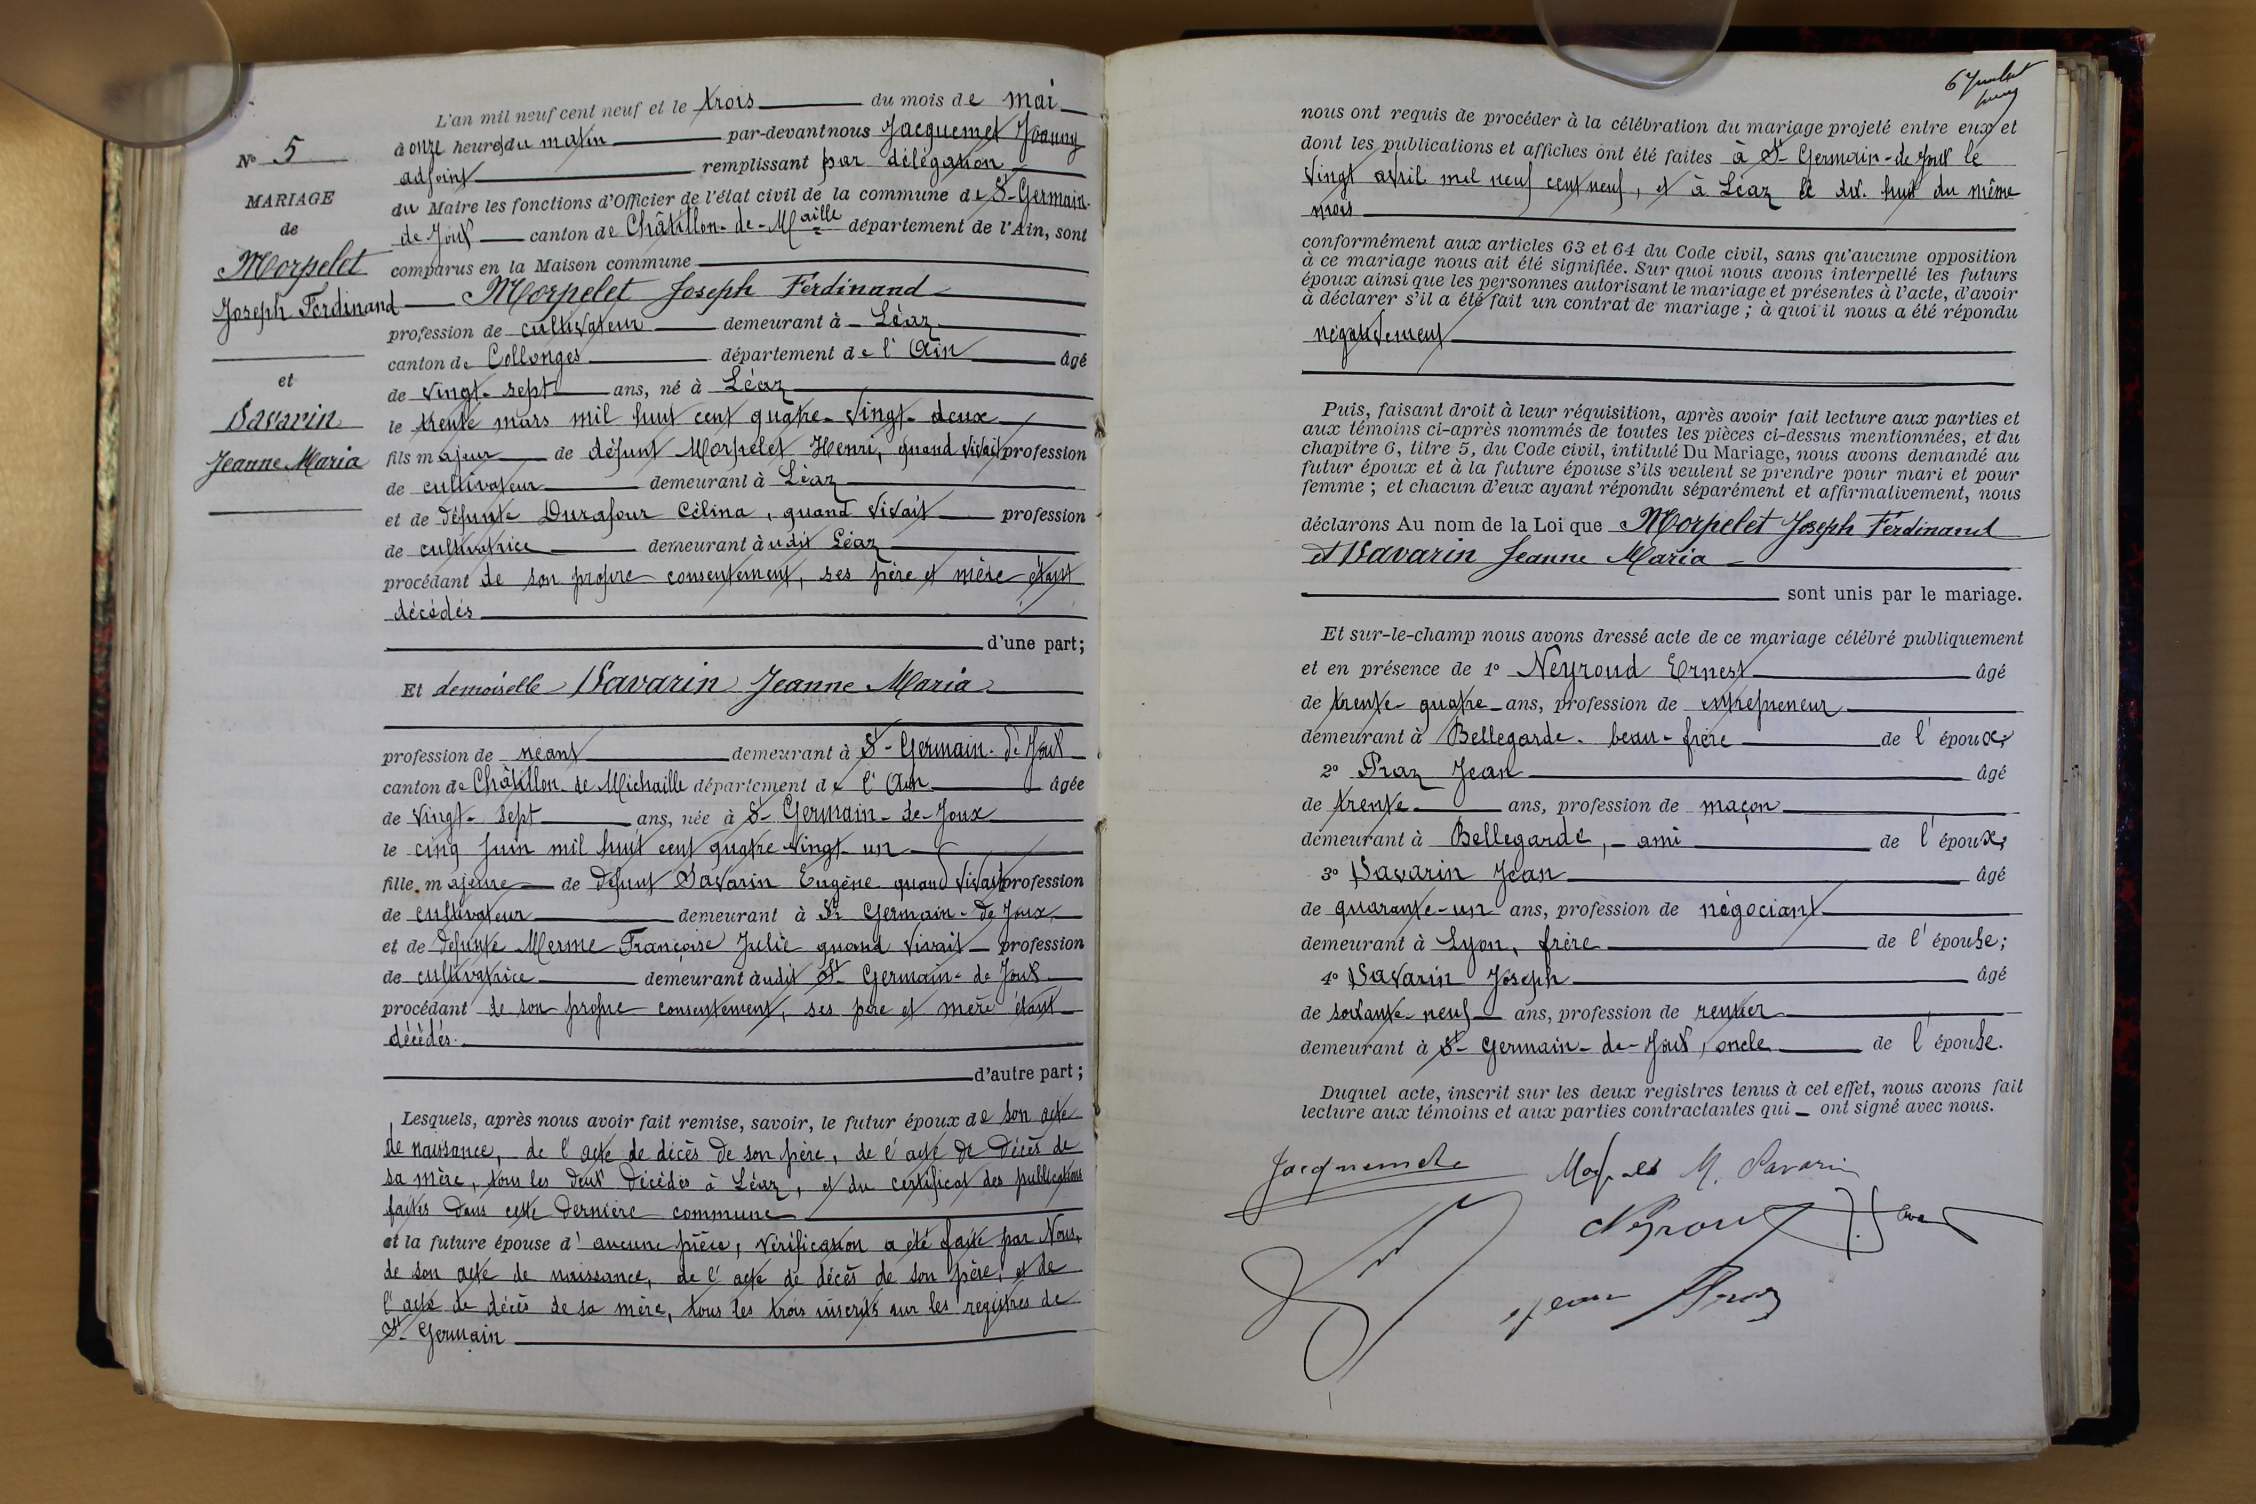 L'an mil neuf cent neuf et le trois du mois de mai
à onze heures du matin par-devant nous Jacquemet Joanny
adjoint remplissant par délégation
du Maire les fonctions d'Officier de l'état civil de la commune de St-Germain-
de Joux canton de Châtillon-de-Maille département de l'Ain, sont
comparus en la Maison commune
Morpelet Joseph Ferdinand
profession de cultivateur demeurant à Léaz
canton de Collonges département de l'Ain âgé
de vingt-sept ans, né à Léaz
le trente mars mil huit cent quatre-vingt-deux
fils majeur de défunt Morpelet Henri, quand vivait profession
de cultivateur demeurant à Léaz
et de défunte Durafour Célina, quand vivait profession
de cultivatrice demeurant àudit Léaz
procédant de son propre consentement, ses père et mère étant
décédés
d'une part;
Et demoiselle Savarin Jeanne Maria
profession de néant demeurant à St-Germain-de Joux
canton de Châtillon de Michaille département de l'Ain âgée
de vingt-sept ans, née à St-Germain-de-Joux
le cinq juin mil huit cent quatre vingt-un
fille majeure de défunt Savarin Eugène quand vivait profession
de cultivateur demeurant à St Germain-de Joux
et de défunte Merme Françoise Julie quand vivait profession
de cultivatrice demeurant àudit St Germain-de Joux
procédant de son propre consentement, ses père et mère étant
décédés.
d'autre part;
Lesquels, après nous avoir fait remise, savoir, le futur époux de son acte
de naissance, de l'acte de décès de son père, de l'acte de décès de
sa mère, tous les deux décédés à Léaz, et du certificat des publications
faites dans cette dernière commune
et la future épouse d'aucune pièce, vérification a été faite par Nous,
de son acte de naissance, de l'acte de décès de son père, et de
l'acte de décès de sa mère, tous les trois inscrits sur les registres de
St-Germain
N° 5
MARIAGE
de
Morpelet
Joseph Ferdinand
et
Savarin
Jeanne Maria
6
nous ont requis de procéder à la célébration du mariage projeté entre eux et
dont les publications et affiches ont été faites à St-Germain-de Joux le
vingt avril mil neuf cent neuf, et à Léaz le dix-huit du même
mois
conformément aux articles 63 et 64 du Code civil, sans qu'aucune opposition
à ce mariage nous ait été signifiée. Sur quoi nous avons interpellé les futurs
époux ainsi que les personnes autorisant le mariage et présentes à l'acte, d'avoir
à déclarer s'il a été fait un contrat de mariage; à quoi il nous a été répondu
négativement
Puis, faisant droit à leur réquisition, après avoir fait lecture aux parties et
aux témoins ci-après nommés de toutes les pièces ci-dessus mentionnées, et du
chapitre 6, titre 5, du Code civil, intitulé Du Mariage, nous avons demandé au
futur époux et à la future épouse s'ils veulent se prendre pour mari et pour
femme; et chacun d'eux ayant répondu séparément et affirmativement, nous
déclarons Au nom de la Loi que Morpelet Joseph Ferdinand
et Savarin Jeanne Maria
sont unis par le mariage.
Et sur-le-champ nous avons dressé acte de ce mariage célébré publiquement
et en présence de 1° Neyroud Ernest âgé
de trente-quatre ans, profession de entrepreneur
demeurant à Bellegarde-beau-frère de l'époux;
2° Praz Jean âgé
de trente ans, profession de maçon
demeurant à Bellegarde, - ami de l'époux;
3° Savarin Jean âgé
de quarante-un ans, profession de négociant
demeurant à Lyon, frère de l'épouse;
4° Savarin Joseph âgé
de soixante-neuf ans, profession de rentier
demeurant à St-Germain-de-Joux, oncle de l'épouse.
Duquel acte, inscrit sur les deux registres tenus à cet effet, nous avons fait
lecture aux témoins et aux parties contractantes qui ont signé avec nous.
M. Savarin
Neyroud
Jean Praz